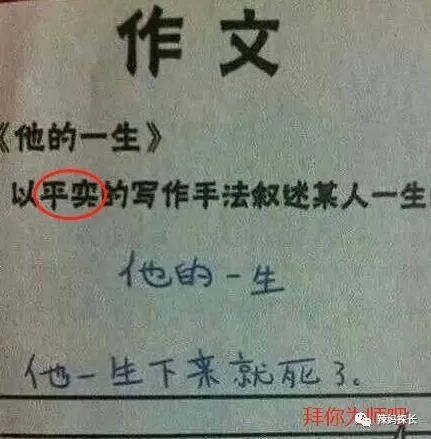 作文
《他的一生》
以平实的写作手法叙述某人一生
他的一生
他一生下来就死了。
拜你为师吧
辣妈探长